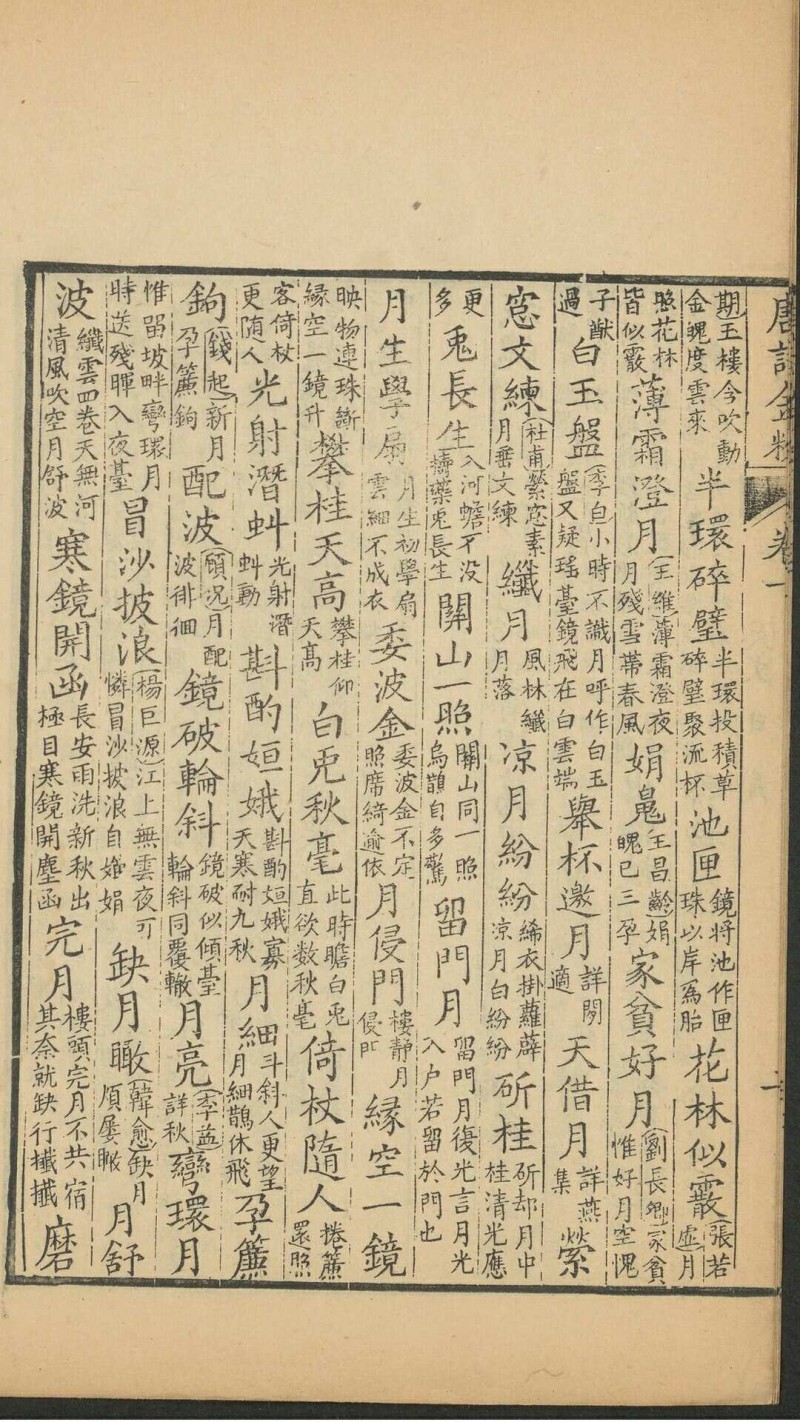 唐詩金粉 卷一 一
期玉樓今吹動金魄度雲來 半環碎璧 半環投積草碎璧聚流杯 池匣 鏡將池作匣珠以岸爲胎 花林似霰 張若虛月
照花林皆似霰 薄霜澄月 王維薄霜澄夜月殘雪帶春風 娟魄 王昌齡娟魄已三孕 家貧好月 劉長卿家貧惟好月空愧
子猷過 白玉盤 李白小時不識月呼作白玉盤又疑瑤臺鏡飛在白雲端 舉杯邀月 詳閒適 天借月 詳燕集 縈
窓文練 杜甫縈窓素月垂文練 纖月 風林纖月落 凉月紛紛 絺衣掛蘿薜凉月白紛紛 斫桂 斫却月中桂清光應
更多 兎長生 入河蟾不没擣藥兎長生 關山一照 關山同一照烏鵲自多驚 留門月 留門月復光言月光入户若留於門也
月生學扇 月生初學扇雲細不成衣 委波金 委波金不定照席綺逾依 月侵門 樓静月侵門 緣空一鏡
映物連珠斷緣空一鏡升 攀桂天高 攀桂仰天高 白兎秋毫 此時瞻白兎直欲数秋毫 倚杖隨人 捲簾還照
客倚杖更随人 光射潛虯 光射潛虯動 斟酌姮娥 斟酌姮娥寡天寒耐九秋 月細 斗斜人更望月細鵲休飛 孕簾
鉤 錢起新月孕簾鉤 配波 顧况月配波徘徊 鏡破輪斜 鏡破似傾臺輪斜同覆轍 月亮 李益詳秋 彎環月
惟留坡畔彎環月時送殘暉入夜臺 冒沙披浪 楊巨源江上無雲夜可憐冒沙披浪自嬋娟 缺月瞰 韓愈缺月煩屢瞰 月舒
波 纖雲四卷天無河清風吹空月舒波 寒鏡開函 長安雨洗新秋出極目寒鏡開塵函 完月 樓頭完月不共宿其奈就缺行攕攕 磨